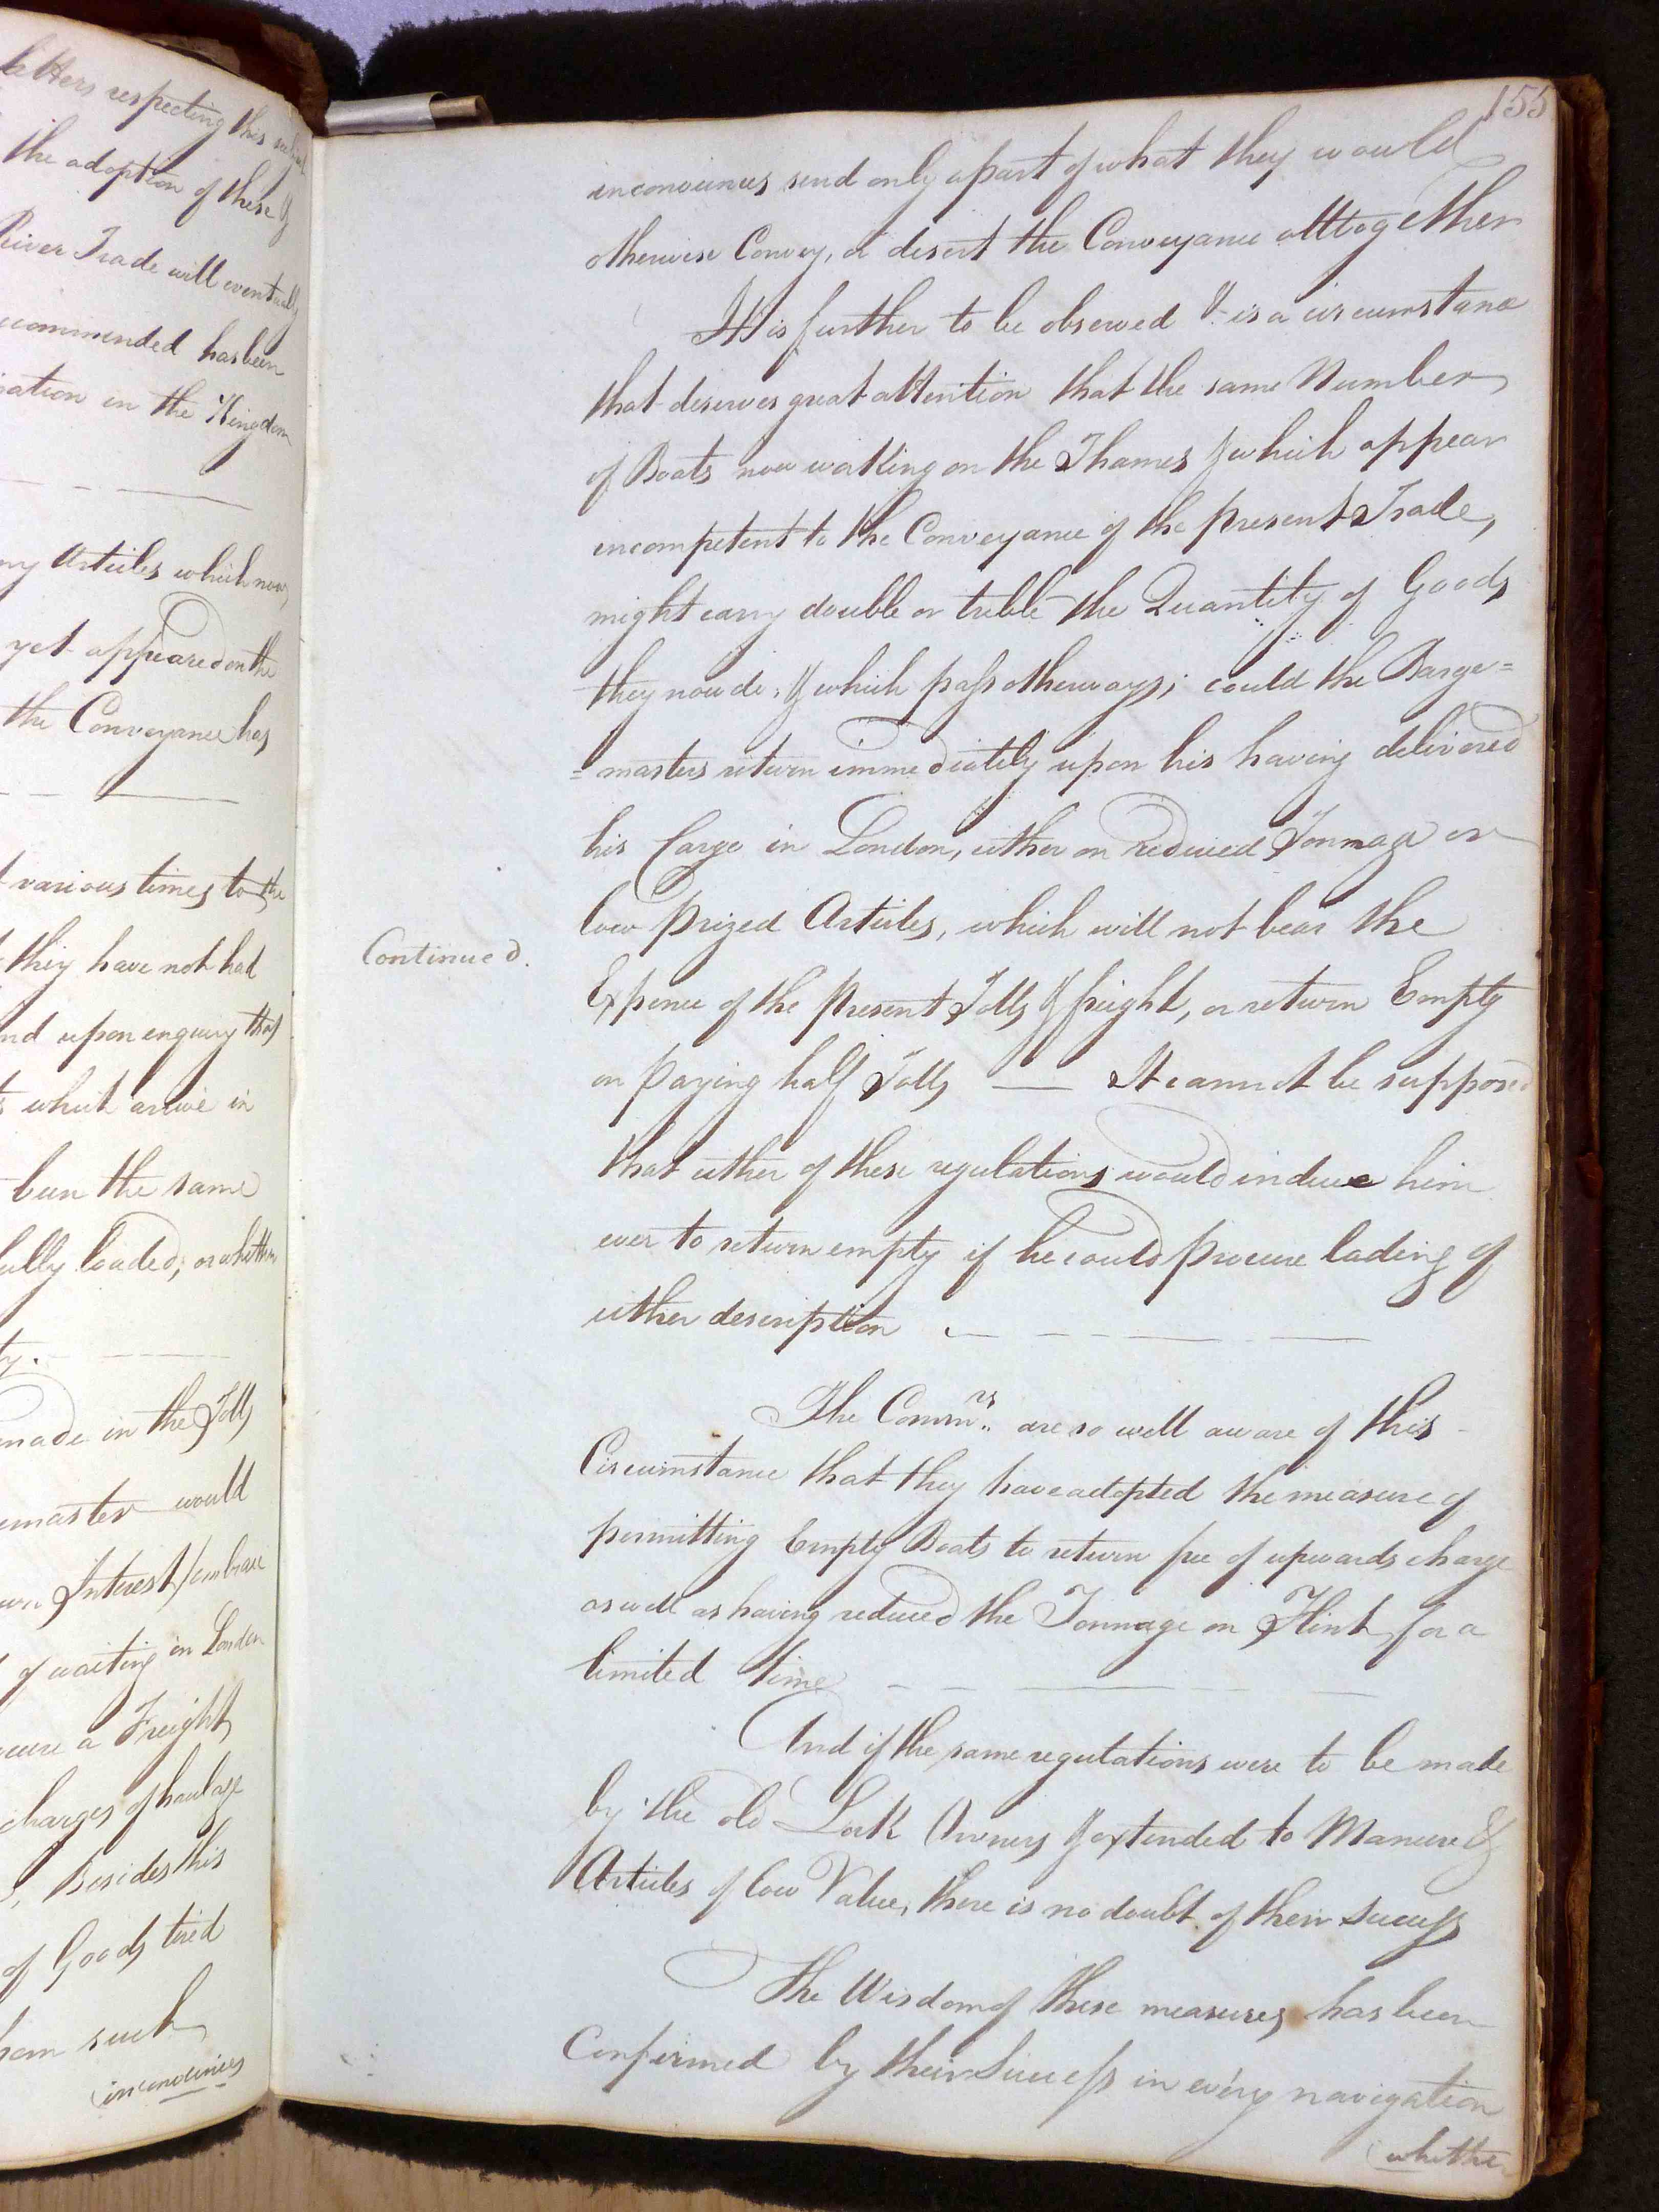 letters respecting this subject
the adoption of these &
River Trade will eventually
commended has been
gation in the Kingdom
ny Articles which now
yet appeared on the
the Conveyance has
t various times to the
they have not had
nd upon enquiry that
which arrive in
been the same
ully loaded; or whether
ty.
made in the Tolls
master would
own Interest/embrace
of waiting in London
cure a Freight
charges of haulage
Besides this
of Goods tired
hem such
inconvenies
155
inconvenies send only a part of what they would
otherwise Convey, or desert the Conveyance alltogether
It is further to be observed & is a circumstance
that deserves great attention that the same Number
of Boats now working on the Thames & which appear
incompetent to the Conveyance of the present Trade,
might carry double or treble the Quantity of Goods
they now do, & which pass otherways; could the Barge=
=masters return immediately upon his having delivered
his Cargo in London, either on reduced Tonnage or
low prized Articles, which will not bear the
Continued.
Expence of the present Tolls & freight, or return Empty
on paying half Tolls — It cannot be supposed
that either of these regulations would induce him
ever to return empty if he could procure lading of
either description
The Commrs. are so well aware of this
Circumstance that they have adopted the measure of
permitting Empty Boats to return free of upwards charge
as well as having reduced the Tonnage on Flint for a
limited time
And if the same regulations were to be made
by the old Lock Owners & extended to Manure &
Articles of low Value, there is no doubt of their success
The Wisdom of these measures has been
Confirmed by their Success in every navigation
whether